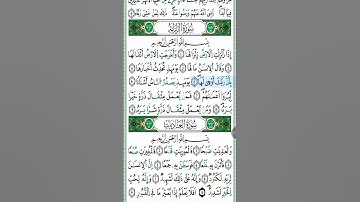 رَّضِىَ ٱللَّهُ عَنْهُمْ وَرَضُوا۟ عَنْهُ ۚ ذَٰلِكَ لِمَنْ خَشِىَ رَبَّهُۥ
سُورَةُ الزَّلْزَلَةِ
بِسْمِ ٱللَّهِ ٱلرَّحْمَٰنِ ٱلرَّحِيمِ
إِذَا زُلْزِلَتِ ٱلْأَرْضُ زِلْزَالَهَا ۝١ وَأَخْرَجَتِ ٱلْأَرْضُ أَثْقَالَهَا
۝٢ وَقَالَ ٱلْإِنسَٰنُ مَا لَهَا ۝٣ يَوْمَئِذٍ تُحَدِّثُ أَخْبَارَهَا ۝٤
بِأَنَّ رَبَّكَ أَوْحَىٰ لَهَا ۝٥ يَوْمَئِذٍ يَصْدُرُ ٱلنَّاسُ أَشْتَاتًا
لِّيُرَوْا۟ أَعْمَٰلَهُمْ ۝٦ فَمَن يَعْمَلْ مِثْقَالَ ذَرَّةٍ خَيْرًا
يَرَهُۥ ۝٧ وَمَن يَعْمَلْ مِثْقَالَ ذَرَّةٍ شَرًّا يَرَهُۥ ۝٨
سُورَةُ العَادِيَاتِ
بِسْمِ ٱللَّهِ ٱلرَّحْمَٰنِ ٱلرَّحِيمِ
وَٱلْعَٰدِيَٰتِ ضَبْحًا ۝١ فَٱلْمُورِيَٰتِ قَدْحًا ۝٢ فَٱلْمُغِيرَٰتِ صُبْحًا
۝٣ فَأَثَرْنَ بِهِۦ نَقْعًا ۝٤ فَوَسَطْنَ بِهِۦ جَمْعًا ۝٥ إِنَّ ٱلْإِنسَٰنَ
لِرَبِّهِۦ لَكَنُودٌ ۝٦ وَإِنَّهُۥ عَلَىٰ ذَٰلِكَ لَشَهِيدٌ ۝٧ وَإِنَّهُۥ لِحُبِّ
ٱلْخَيْرِ لَشَدِيدٌ ۝٨ أَفَلَا يَعْلَمُ إِذَا بُعْثِرَ مَا فِى ٱلْقُبُورِ ۝٩